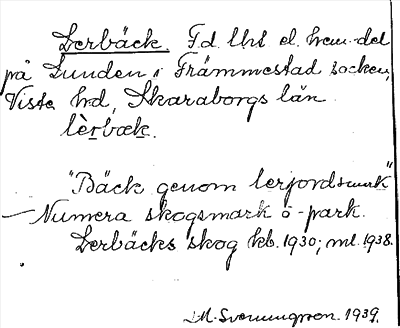 Lerbäck. F.d. lht el. hem.del
på Lunden i Främmestad socken,
Viste hd, Skaraborgs län.
lèrbæk.
"Bäck genom lerjordsmark"
— Numera skogsmark o -park.
Lerbäcks skog kb. 1930; ml. 1938.
M. Svenungsson. 1939.